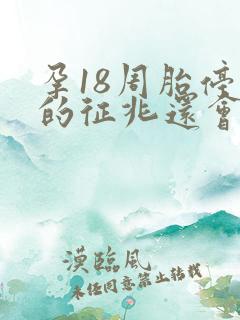 孕18周胎停
的征兆還會
漠臨風
未经同意禁止转载